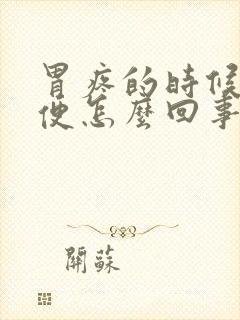 胃疼的時候
便怎麼回事
開蘇